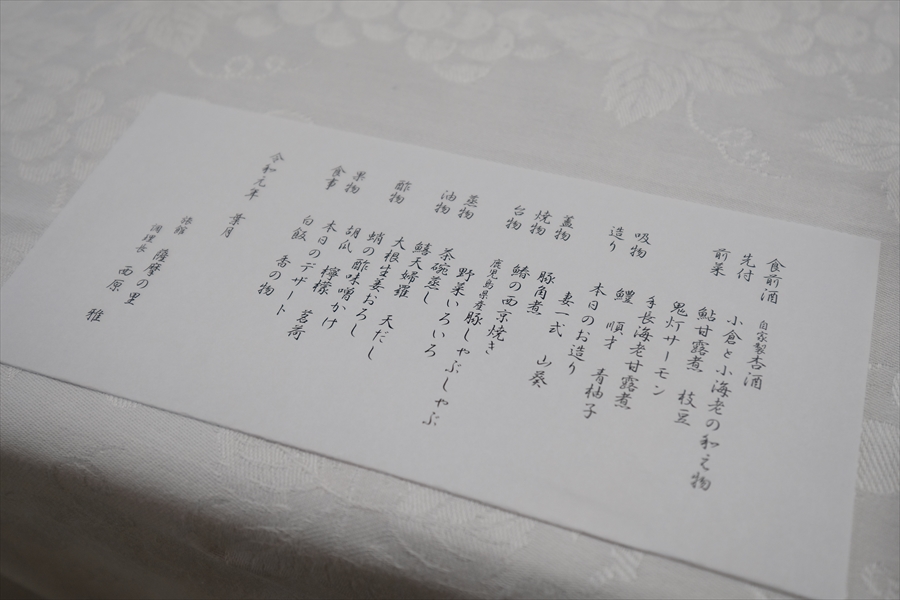 食前酒 自家製杏酒
先付 小倉と小海老の和え物
前菜 鮎甘露煮 枝豆
鬼灯サーモン
手長海老甘露煮
吸物 鱧 順才 青柚子
造り 本日のお造り
妻一式 山葵
蓋物 豚角煮
焼物 鰆の西京焼き
台物 鹿児島県産豚しゃぶしゃぶ
野菜いろいろ
蒸物 茶碗蒸し
油物 鱚天婦羅 天だし
大根生姜おろし
酢物 蛸の酢味噌かけ
胡瓜 檸檬 茗荷
果物 本日のデザート
食事 白飯 香の物
令和元年 葉月
旅館 薩摩の里
調理長 西原 雅